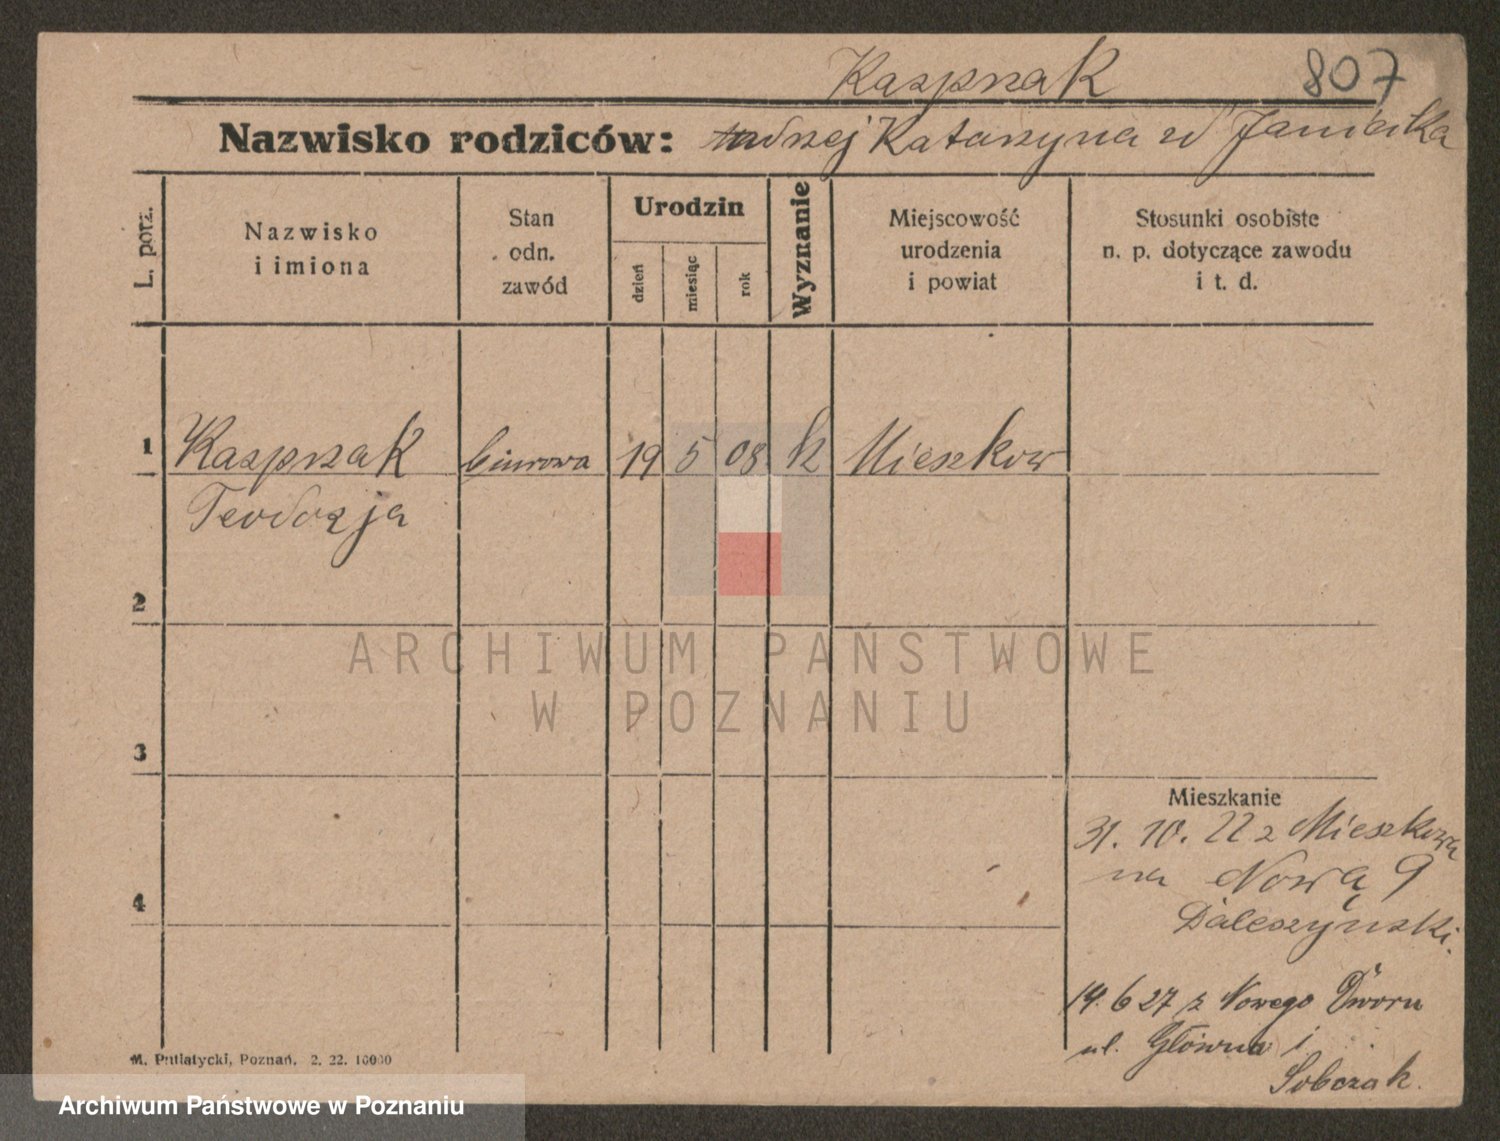 Kasprzak 807
Nazwisko rodziców: Andrzej Katarzyna zd
L. porz.
Nazwisko
i imiona
Stan
odn.
zawód
Urodzin
dzień
miesiąc
rok
Wyznanie
Miejscowość
urodzenia
i powiat
Stosunki osobiste
n. p. dotyczące zawodu
i t. d.
1 Kasprzak biurowa 19 5 08 k Mieszkow
Teodozja
2
ARCHIWUM PAŃSTWOWE
W POZNANIU
3
Mieszkanie
31. 10. 22 z Mieszkowa
na Nową 9
Daleszyński.
4
14. 6 27 z Nowego Dworu
ul. Główna 1
Sobczak.
M. Putiatycki, Poznań. 2. 22. 10000
Archiwum Państwowe w Poznaniu